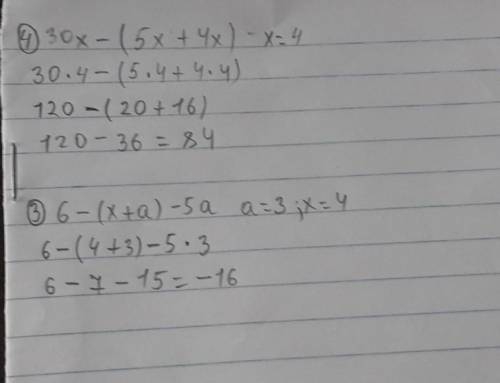 ④ 30x - (5x + 4x) - x = 4
30 · 4 - (5 · 4 + 4 · 4)
120 - (20 + 16)
120 - 36 = 84
③ 6 - (x + a) - 5a a = 3 ; x = 4
6 - (4 + 3) - 5 · 3
6 - 7 - 15 = -16